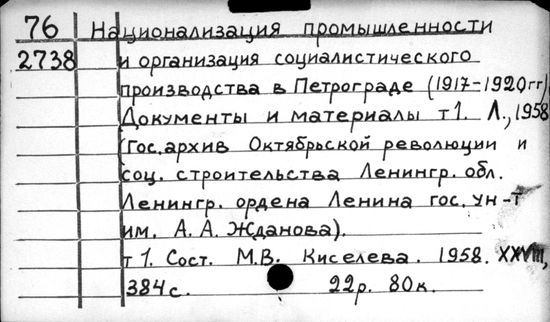 76 Национализация промышленности
2738 и организация социалистического
производства в Петрограде (1917-1920гг).
Документы и материалы т 1. Л., 1958
(Гос. архив Октябрьской революции и
соц. строительства Ленингр. обл.
Ленингр. ордена Ленина гос. ун-т
им. А. А. Жданова).
т 1. Сост. М.В. Киселева. 1958. XXVIII,
384 с. 22р. 80к.